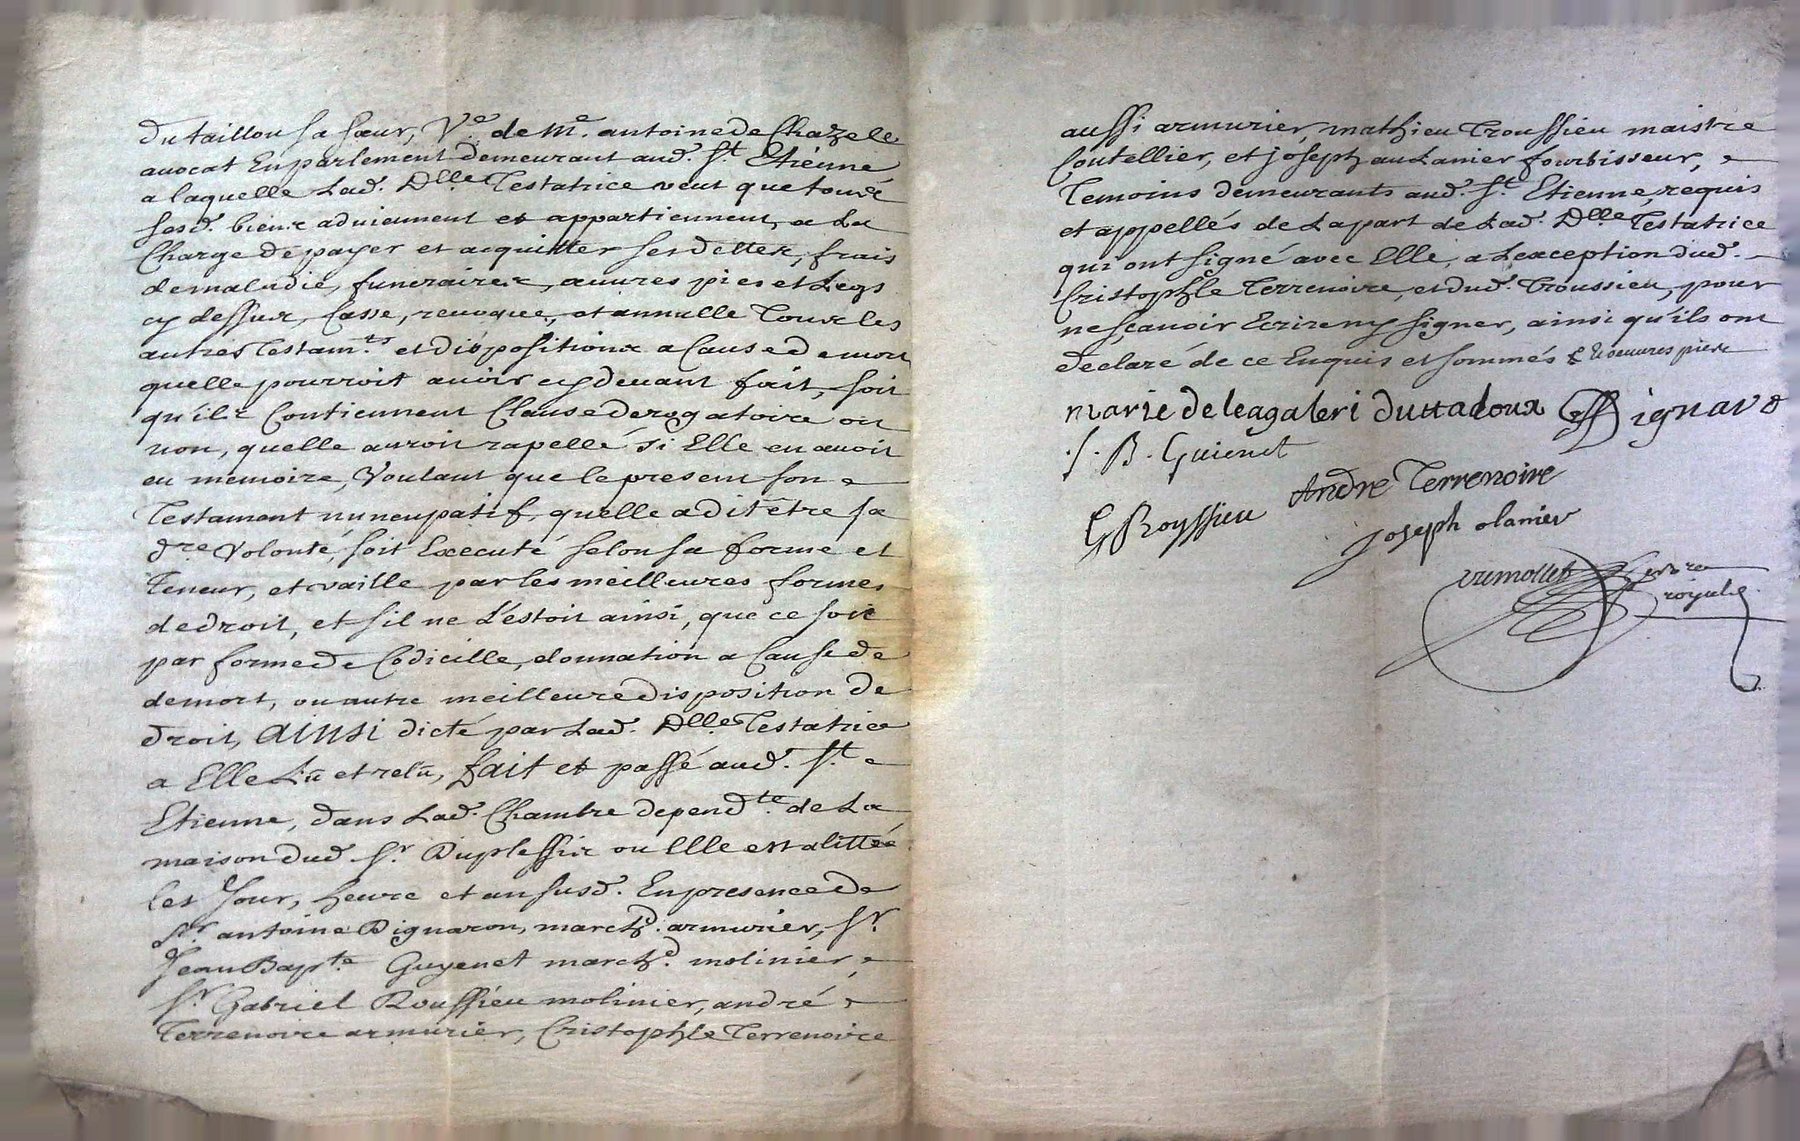 du taillou sa sœur, Ve. de Me. antoine de Chazele
avocat En parlement demeurant aud. St Etiénne
a laquelle Lad. Dlle Testatrice veut que tous
sesd. biens adviennent et appartiennent, a La
Charge de payer et acquitter ses dettes, frais
de maladie, funeraires, œuvres pies et Legs
cy dessus, Casse, revoque, et annulle Tous les
autres Testamts. et dispositions a Cause de mort
quelle pourroit avoir cy devant fait, soit
qu'ils Contiennent Clause derogatoire ou
non, quelle auroit rapellé si Elle en avoit
eu memoire, Voulant que le present son
Testament nuncupatif, quelle a dit être sa
dre Volonté, soit Executé selon sa forme et
Teneur, et vaille par les meilleures formes
de droit, et sil ne L'estoit ainsi, que ce soit
par forme de Codicille, donnation a Cause de
de mort, ou autre meilleure disposition de
droit, AINSI dicté par Lad. Dlle Testatrice
a Elle Lû et relû, fait et passé aud. St.
Etienne, dans Lad. Chambre dependte. de La
maison dud. Sr. Duplessis ou Elle est alittée
les Jour, heure et an susd. En presence de
Sr. antoine Dignaron, marchd. armurier, Sr.
Jean Bapte. Guyenet marchd. molinier,
Sr. Gabriel Roussieu molinier, andré
Terrenoire armurier, Cristophle Terrenoire
aussi armurier, mathieu Troussieu maistre
Coutellier, et joseph aulanier fourbisseur,
Temoins demeurants aud. St. Etienne, requis
et appellés de La part de Lad. Dlle Testatrice
qui ont signé avec Elle, a Lexception dud.
Cristophle Terrenoire, et dud. Troussieu, pour
ne sçavoir Ecrire ny signer, ainsi qu'ils ont
declaré de ce Enquis et sommés & œuvres pies
marie de leagaleri duttadoux Dignard
J. B. Guienet
Andre Terrenoire
G Royssieu
Joseph olanier
vu mollet
royal